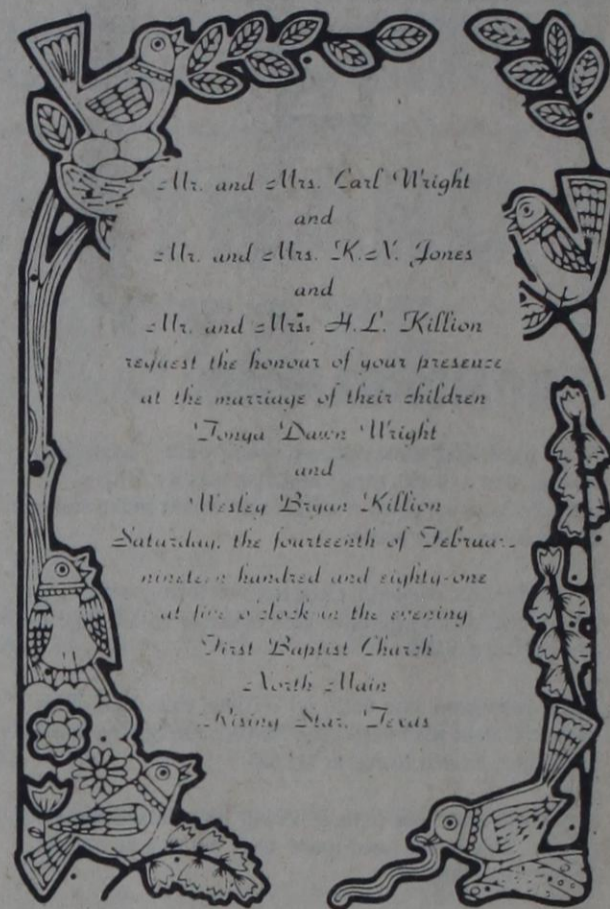 Mr. and Mrs. Carl Wright
and
Mr. and Mrs. K.N. Jones
and
Mr. and Mrs. H.L. Killion
request the honour of your presence
at the marriage of their children
Tonya Dawn Wright
and
Wesley Bryan Killion
Saturday, the fourteenth of February
nineteen hundred and eighty-one
at five o'clock in the evening
First Baptist Church
North Main
Rising Star, Texas